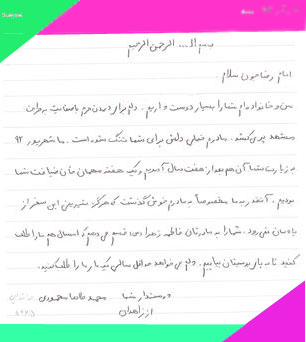 بسم ا... الرحمن الرحیم
امام رضا جون سلام
من و خانواده ام شما را بسیار دوست داریم. دلم برای دیدن حرم باصفایت به طرف
مشهد پر می کشد. مادرم خیلی دلش برای شما تنگ شده است. ما شهریور ۹۲
به زیارت شما آن هم بعد از هفت سال آمدیم و یک هفته مهمان خان ضیافت شما
بودیم. آنقدر به ما مخصوصاً به مادرم خوش گذشت که هرگز شیرینی این سفر از
یادمان نمی رود. شما را به مادرتان فاطمه زهرا (س) قسم می دهم که امسال هم ما را طلب
کنید تا به پای بوستان بیاییم. دلم می خواهد حداقل سالی یک بار ما را طلب کنید.
دوستدار شما محمد طاها محمودی
از زاهدان